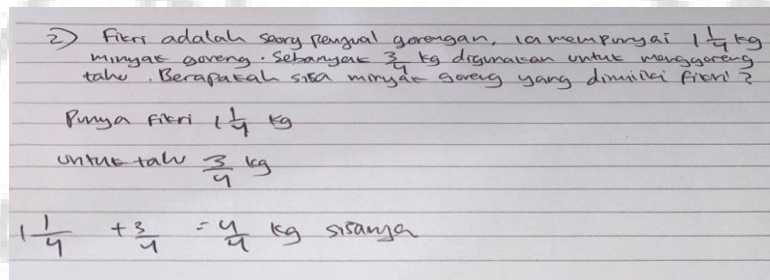 2) Fikri adalah seorg penjual gorengan, ia mempunyai 1 1/4 kg
minyak goreng. Sebanyak 3/4 kg digunakan untuk menggoreng
tahu. Berapakah sisa minyak goreng yang dimiliki fikri?
Punya Fikri 1 1/4 kg
untuk tahu 3/4 kg
1 1/4 + 3/4 = 4/4 kg sisanya